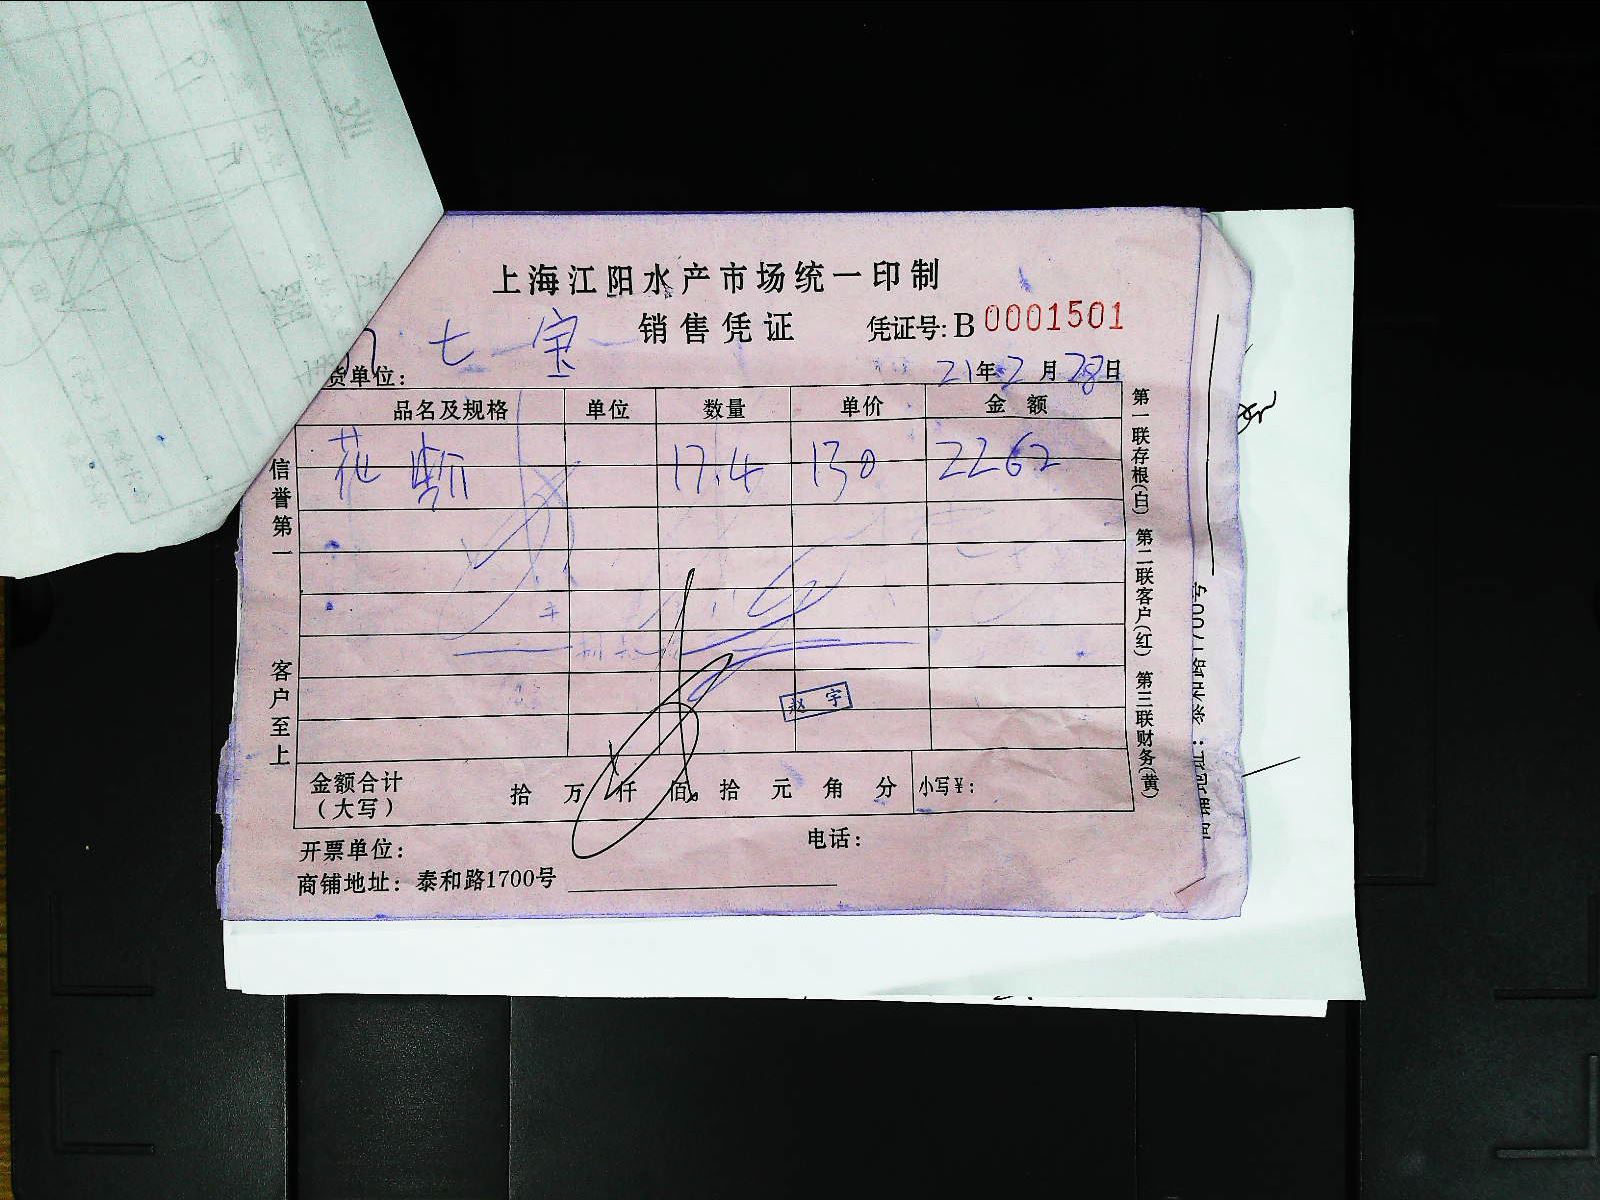 上海江阳水产市场统一印制
销售凭证 凭证号: B 0001501
货单位: 七宝 21年2月28日
品名及规格 单位 数量 单价 金额
花 17.4 130 2262
信誉第一 客户至上
第一联存根(白) 第二联客户(红) 第三联财务(黄)
赵宇
金额合计(大写) 拾 万 仟 佰 拾 元 角 分 小写¥:
开票单位: 电话:
商铺地址: 泰和路1700号